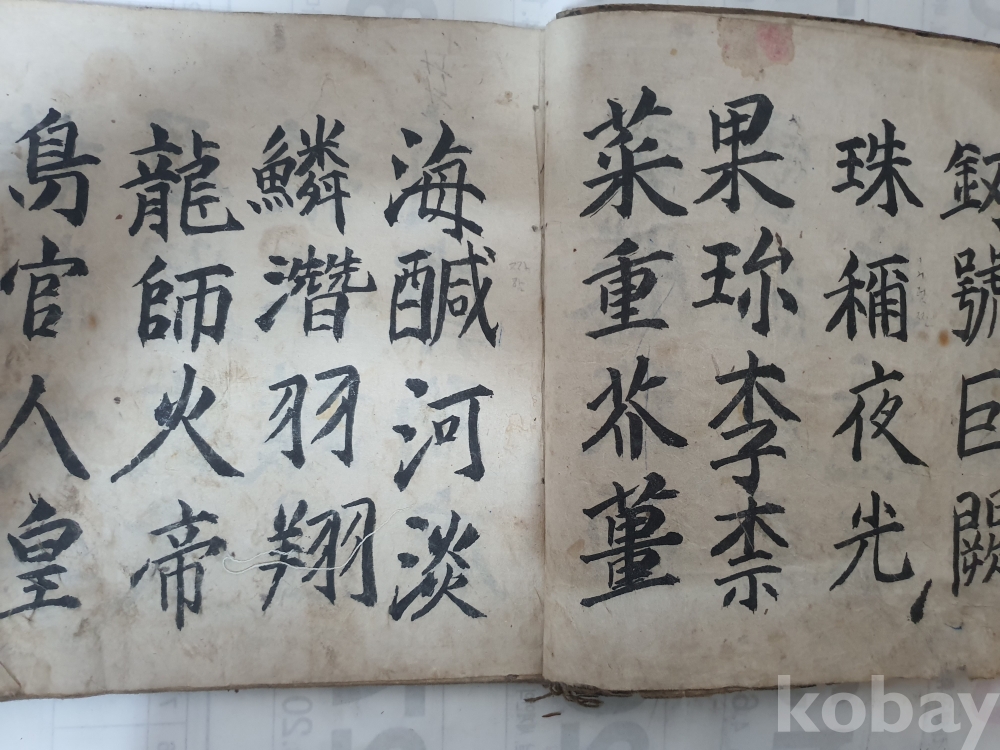 釼號巨闕
珠稱夜光
果珎李柰
菜重芥薑
海醎河淡
鱗潛羽翔
龍師火帝
鳥官人皇
kobay